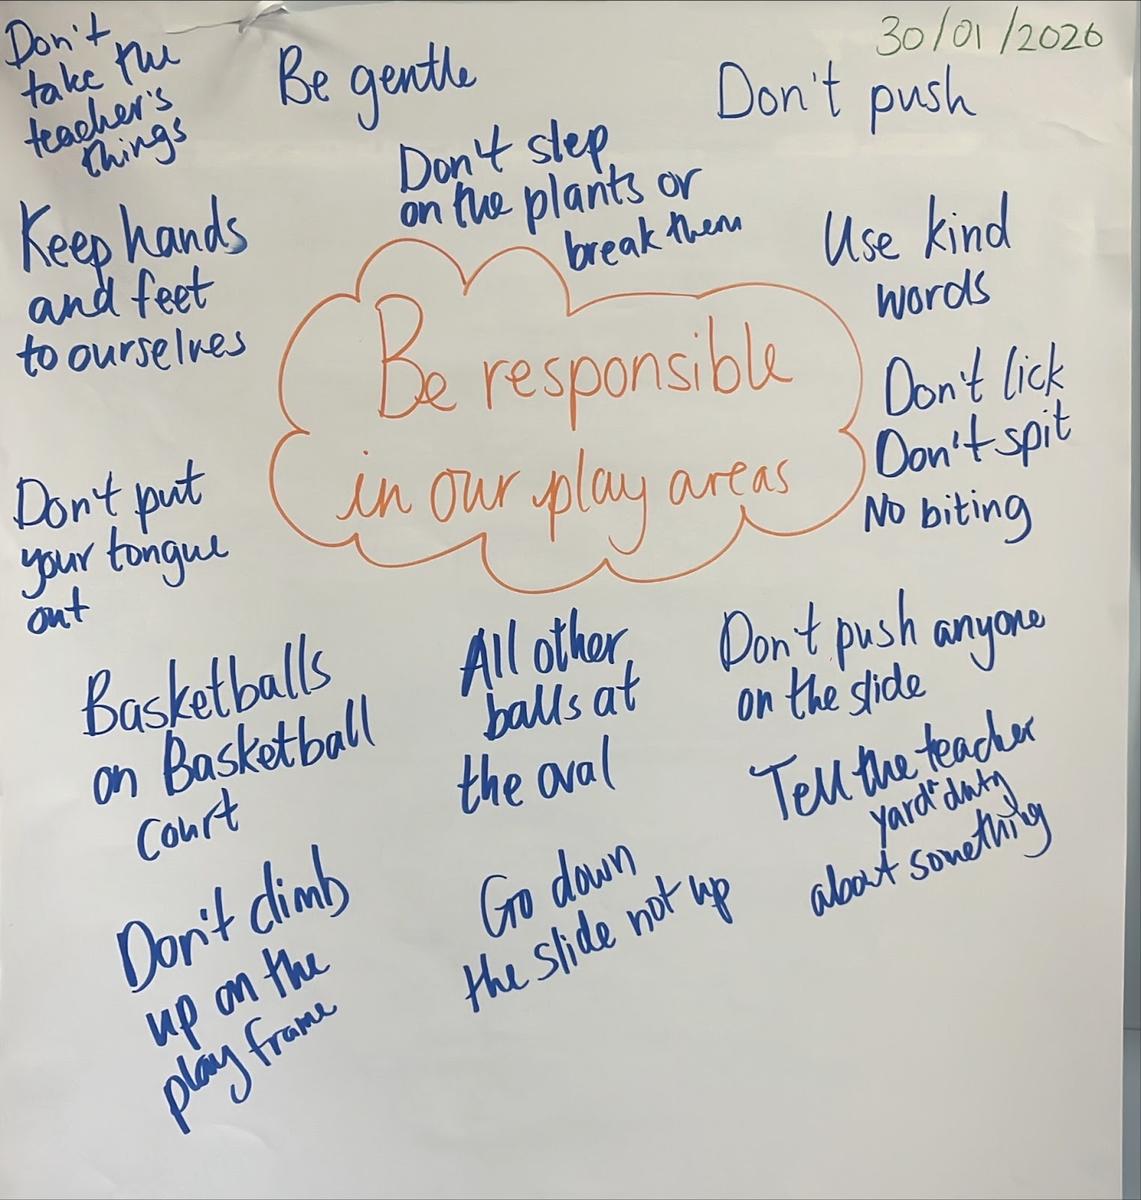 30/01/2026
Don't
take the
teacher's
things
Be gentle
Don't push
Don't step
on the plants or
break them
Keep hands
and feet
to ourselves
Use kind
words
Be responsible
in our play areas
Don't lick
Don't spit
No biting
Don't put
your tongue
out
Basketballs
on Basketball
court
All other
balls at
the oval
Don't push anyone
on the slide
Tell the teacher
yard duty
about something
Don't climb
up on the
play frame
Go down
the slide not up